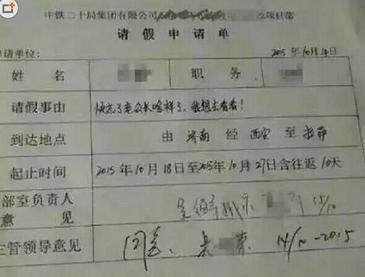 中铁二十局集团有限公司 项目部
请假申请单
申请单位: 2015年10月14日
姓名 职务
请假事由 快忘了老公长啥样了,我想去看看!
到达地点 由 济南 经 西安 至 拉萨
起止时间 2015年10月18日至2015年10月27日含往返10天
部室负责人意见 呈领导批示 15/10
主管领导意见 同意。 14/10-2015